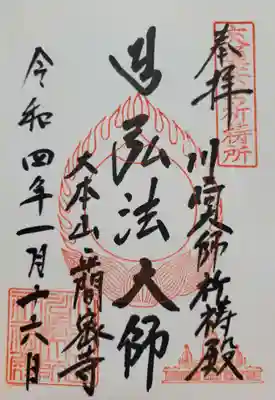 奉拝
川崎大師祈祷殿
弘法大師
大本山平間寺
令和四年一月十六日